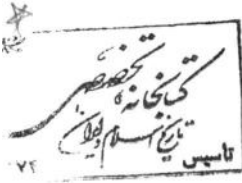 کتابخانه تخصصی
تاریخ اسلام و ایران
تاسیس
۷۲